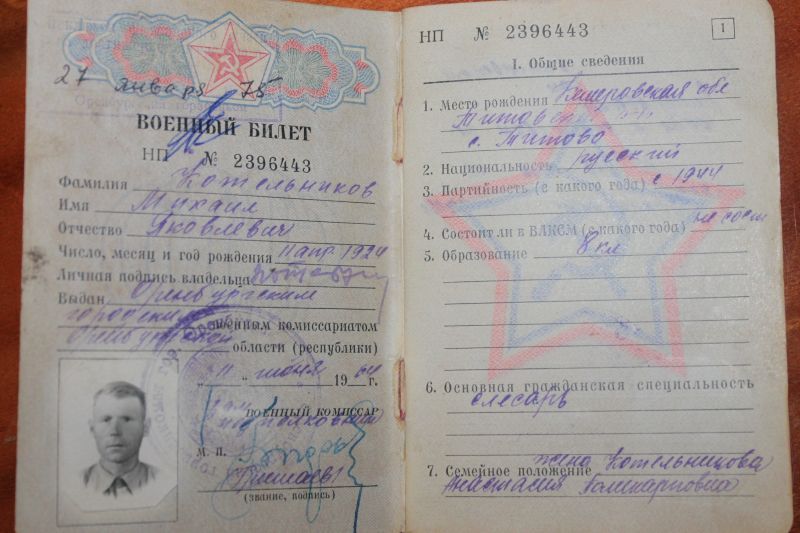 27 января 75
ВОЕННЫЙ БИЛЕТ
НП № 2396443
Фамилия Котельников
Имя Михаил
Отчество Яковлевич
Число, месяц и год рождения 11 апр. 1924
Личная подпись владельца
Выдан Оренбургским
городским военным комиссариатом
Оренбургской области (республики)
" " июня 1964 г.
ВОЕННЫЙ КОМИССАР
подполковник
М. П.
(звание, подпись)
НП № 2396443 1
I. Общие сведения
1. Место рождения Кемеровская обл
Титовский
с. Титово
2. Национальность русский
3. Партийность (с какого года) с 1944
4. Состоит ли в ВЛКСМ (с какого года) не сост
5. Образование 8 кл
6. Основная гражданская специальность
слесарь
7. Семейное положение жена Котельникова
Анастасия Поликарповна